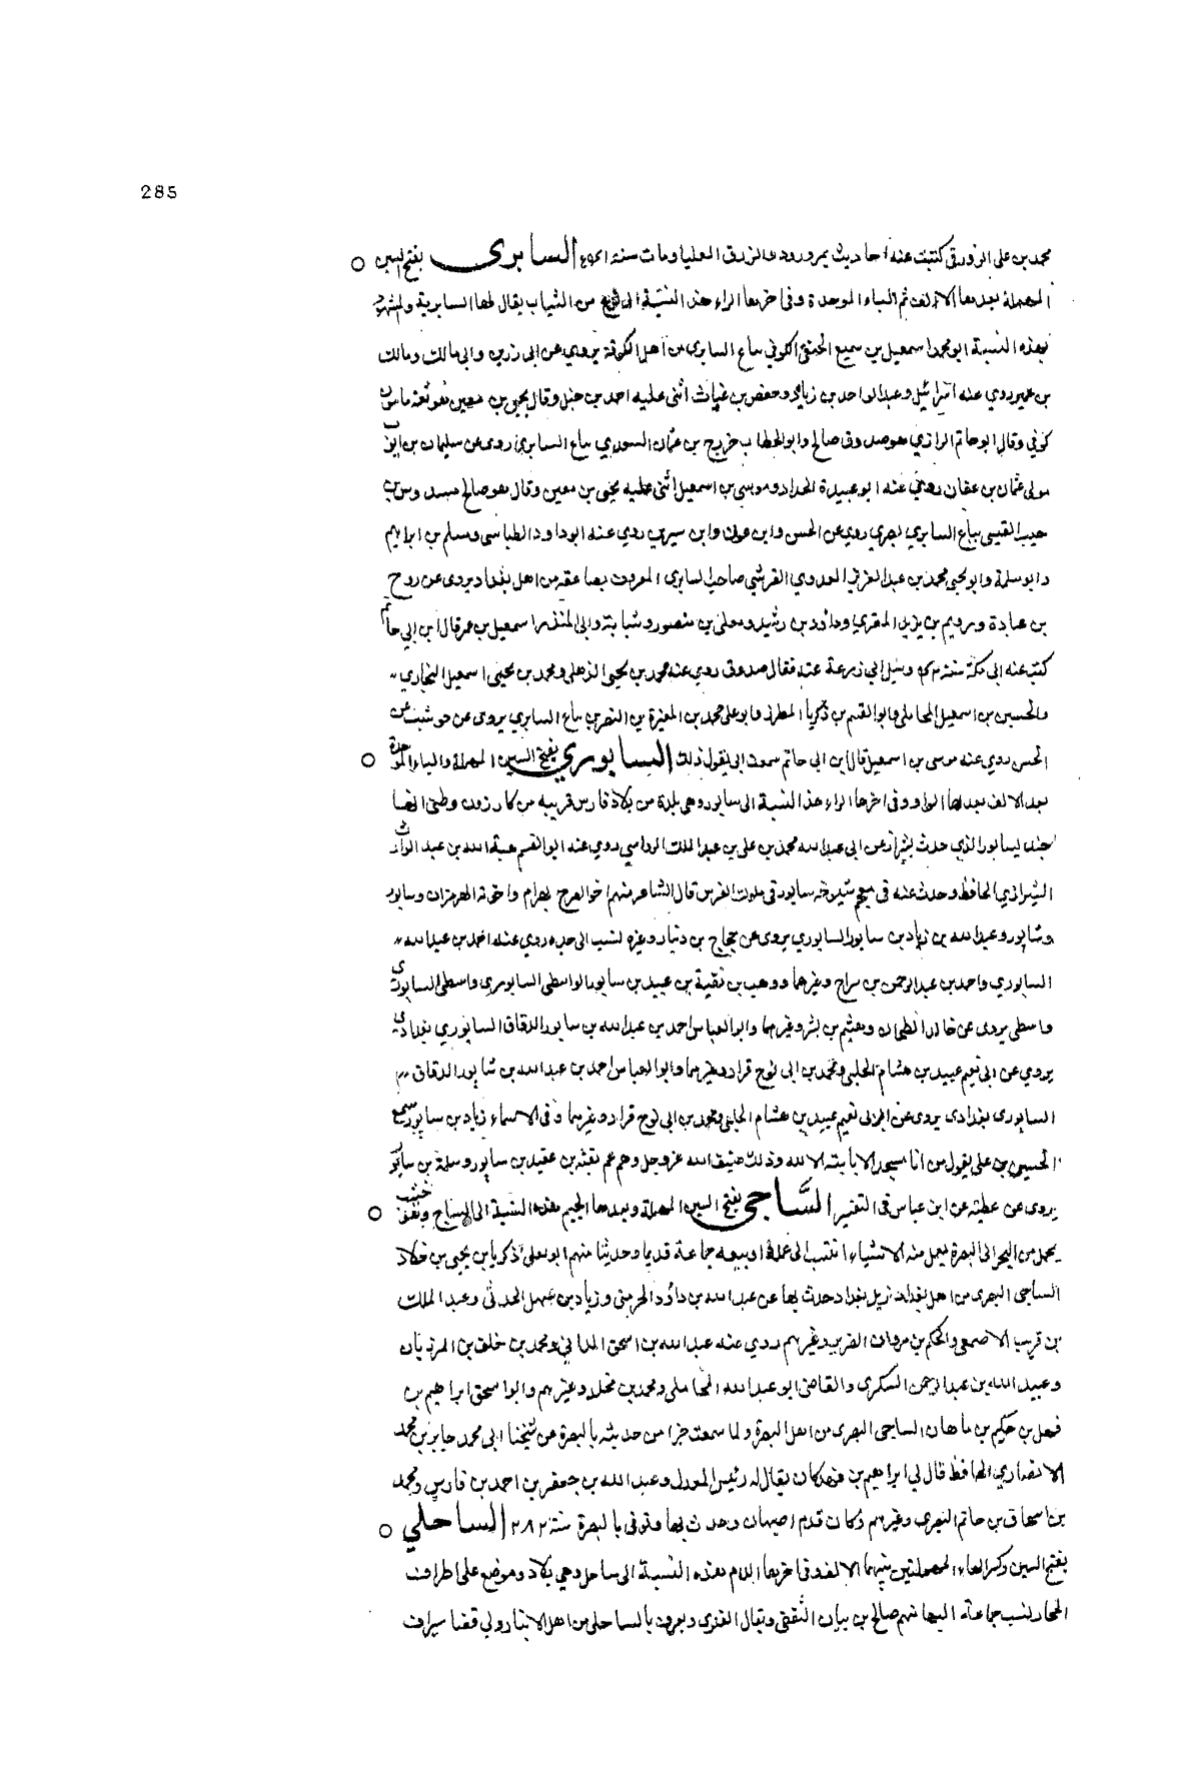 285
محمد بن على الزورقى كتبت عنه احاديث بمرورود الزرق العليا ومات سنة السابرى بفتح السين
المهملة بعدها الالف ثم الباء الموحدة وفى اخرها الراء هذه النسبة الى نوع من الثياب يقال لها السابرية والمشهور
بهذه النسبة ابو محمد اسمعيل بن سميع الحنفى الكوفي بياع السابرى من اهل الكوفة يروي عن ابى رزين وابى مالك ومالك
بن عمير روي عنه اسرائيل وعبد الواحد بن زياد وحفص بن غياث اثنى عليه احمد بن حنبل وقال يحيى بن معين هو ثقة مامون
كوفي وقال ابو حاتم الرازي هو صدوق صالح وابو الخطاب خزرج بن عثمان السعدي بياع السابري روى عن سليمان بن ابى ايوب
مولى عثمان بن عفان روى عنه ابو عبيدة الحداد وموسى بن اسمعيل اثنى عليه يحيى بن معين وقال هو صالح
حبيب القيسى بياع السابري بصري روي عن الحسن وابن عون وابن سيرين روي عنه ابو داود الطيالسى ومسلم بن ابراهيم
وابو سلمة وابو يحيى محمد بن عبد العزيز العدوي القرشي صاحب السابرى المعروف بصاعقة من اهل بغداد يروى عن روح
بن عبادة ويزيد المقري وداؤد بن رشيد ومعلى بن منصور وشبابة وابى المنذر اسمعيل بن عمر قال ابن ابي حاتم
كتب عنه ابى بمكة سنة وسئل ابي زرعة عنه فقال صدوق روي عنه محمد بن يحيى الذهلى ومحمد بن اسمعيل البخاري
والحسين بن اسمعيل المحاملى وابو القسم بن زكريا المطرز وابو على محمد بن المغيرة بن النضر بياع السابري يروى عن حوشب عن
الحسن روي عنه موسى بن اسمعيل قال ابن ابى حاتم سمعت ابى يقول ذلك السابوري بفتح السين المهملة والباء الموحدة
بعد الالف بعدها الواو وفى اخرها الراء هذه النسبة الى سابور وهى بلدة من بلاد فارس قريبة من كازرون وظنى انها
جند يسابور الذي حدث بشيراز عن ابى عبد الله محمد بن على بن عبد الملك روي عنه ابو القسم هبة الله بن عبد الوارث
الشيرازي الحافظ وحدث عنه فى معجم شيوخه سابور فى ملوك الفرس قال الشاعر منهم اخو الصرح بهرام واخوته الهرمزان وسابور
وشابور وعبد الله بن زياد بن سابور السابوري يروى عن حجاج بن دينار وغيره نسب الى جده روي عنه احمد بن عبد الله
السابوري واحمد بن عبد الرحمن بن سراج وغيرهما ووهب بن بقية بن عبيد بن سابور الواسطى السابوري واسطى السابوري
واسطى يروى عن خالد الطحان وهشيم بن بشر وغيرهما وابو العباس احمد بن عبد الله بن سابور الدقاق السابوري بغدادي
يروي عن ابى نعيم عبيد بن هشام الحلبى ومحمد بن ابى نوح قراد وغيرهما وابو العباس احمد بن عبد الله بن شابور الدقاق
السابورى بغدادى يروى عن ابى نعيم عبيد بن هشام الحلبى ومحمد بن ابى نوح قراد وغيرهما وفى الاسماء زياد بن سابور سمع
الحسين بن على يقول وسلمة بن سابور
يروى عن عطية عن ابن عباس فى التفسير السَّاجى بفتح السين المهملة وبعدها الجيم هذه النسبة الى الساج وهو خشب
يحمل من البحر الى البصرة يعمل منه الاشياء انتسب الى عمله او بيعه جماعة قديما وحديثا منهم ابو يعلى زكريا بن يحيى بن خلاد
الساجى البصرى من اهل بغداد نزيل بغداد حدث بها عن عبد الله بن داؤد الخريبى وزياد بن سهل الحدثى وعبد الملك
بن قريب الاصمعى والحكم بن مروان الضرير وغيرهم روي عنه عبد الله بن اسحق المدايني ومحمد بن خلف بن المرزبان
وعبيد الله بن عبد الرحمن السكرى والقاضى ابو عبد الله المحاملى ومحمد بن مخلد وغيرهم وابو اسحق ابراهيم بن
فهد بن حكيم بن ماهان الساجى البصرى من اهل البصرة ولما سمعت جزا من حديثه بالبصرة عن شيخنا ابى محمد جابر بن محمد
الانصاري الحافظ قال لي ابراهيم بن فهد كان يقال له رئيس المورد وعبد الله بن جعفر بن احمد بن فارس ومحمد
بن اسحاق بن حاتم البصرى وغيرهم وكان قدم اصبهان وحدث بها وتوفى بالبصرة سنة ٢٨٢ الساحلي
بفتح السين وكسر الحاء المهملتين بينهما الالف وفى اخرها اللام هذه النسبة الى ساحل وهي بلاد وموضع على اطراف
البحار ينسب جماعة اليها منهم صالح بن بيان الثقفى ويقال العنزى ويعرف بالساحلى من اهل الانبار ولي قضا سيراف